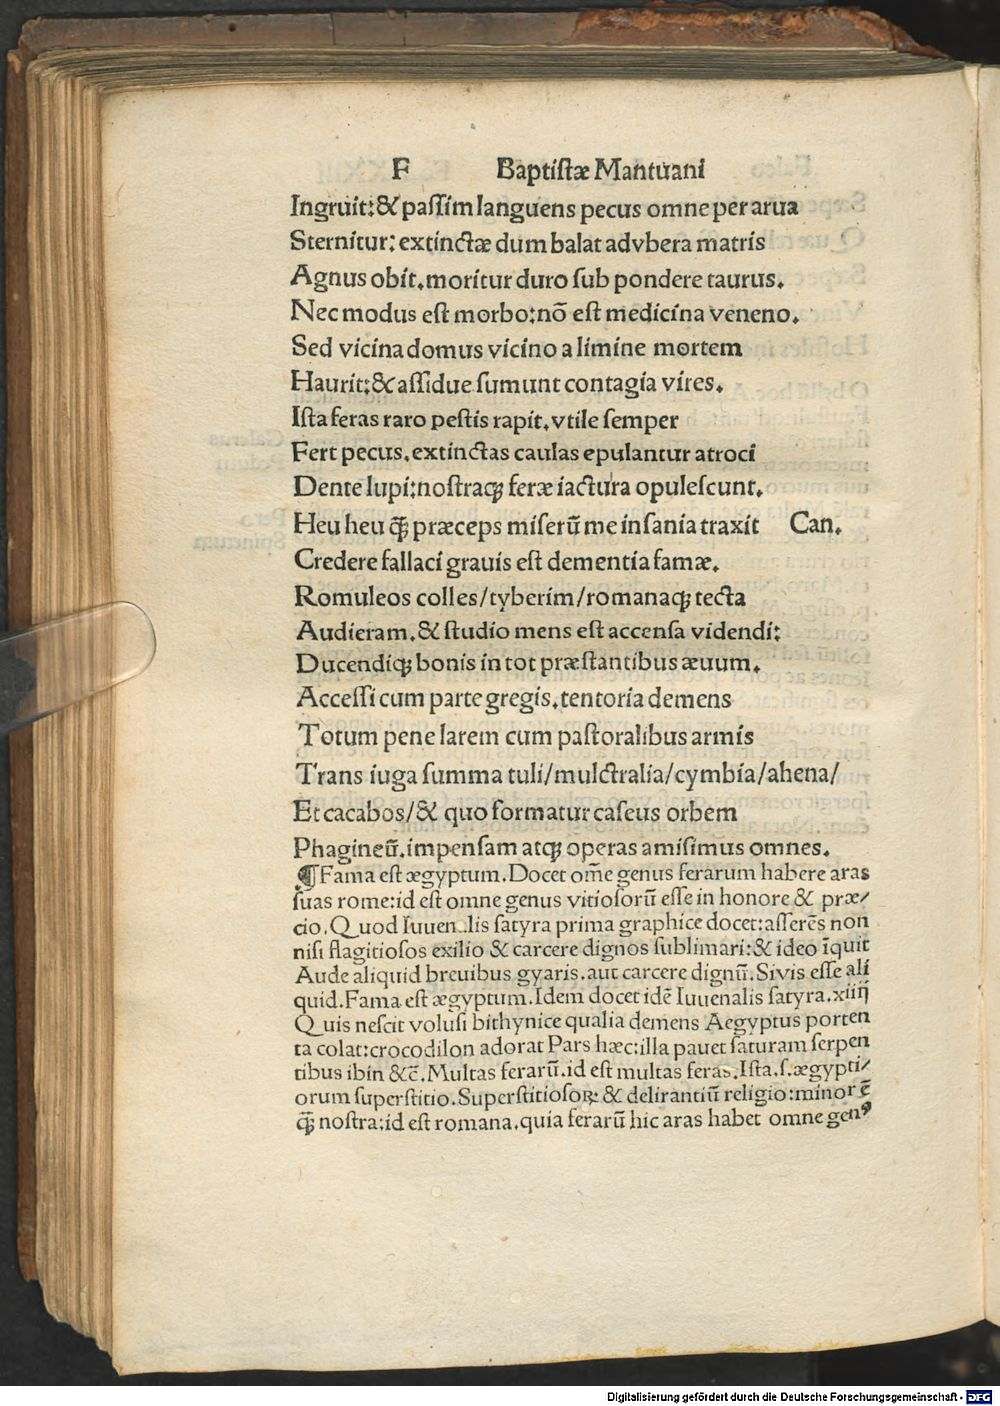 F Baptistæ Mantuani
Ingruit:&passim languens pecus omne per arua
Sternitur: extinctæ dum balat advbera matris
Agnus obit.moritur duro sub pondere taurus.
Nec modus est morbo:nõ est medicina veneno.
Sed vicina domus vicino a limine mortem
Haurit:&assidue sumunt contagia vires.
Ista feras raro pestis rapit.vtile semper
Fert pecus.extinctas caulas epulantur atroci
Dente lupi:nostraqꝫ feræ iactura opulescunt.
Heu heu ꝙ̃ præceps miserũ me insania traxit Can.
Credere fallaci grauis est dementia famæ.
Romuleos colles/tyberim/romanaqꝫ tecta
Audieram.& studio mens est accensa videndi:
Ducendiqꝫ bonis in tot præstantibus æuum.
Accessi cum parte gregis.tentoria demens
Totum pene larem cum pastoralibus armis
Trans iuga summa tuli/mulctralia/cymbia/ahena/
Et cacabos/& quo formatur caseus orbem
Phagineũ.impensam atqꝫ operas amisimus omnes.
¶Fama est ægyptum.Docet om̃e genus ferarum habere aras
suas rome:id est omne genus vitiosorũ esse in honore & præ/
cio.Quod Iuuenalis satyra prima graphice docet:asserẽs non
nisi flagitiosos exilio & carcere dignos sublimari:& ideo ĩquit
Aude aliquid breuibus gyaris.aut carcere dignũ.Sivis esse ali
quid.Fama est ægyptum.Idem docet idẽ Iuuenalis satyra.xiiij
Quis nescit volusi bithynice qualia demens Aegyptus porten
ta colat:crocodilon adorat Pars hæc:illa pauet saturam serpen
tibus ibin &c̃.Multas ferarũ.id est multas feras.Ista.s.ægypti/
orum superstitio.Superstitiosoꝝ: & delirantiũ religio:minor ẽ
ꝙ̃ nostra:id est romana.quia ferarũ hic aras habet omne genꝰ
Digitalisierung gefördert durch die Deutsche Forschungsgemeinschaft - DFG